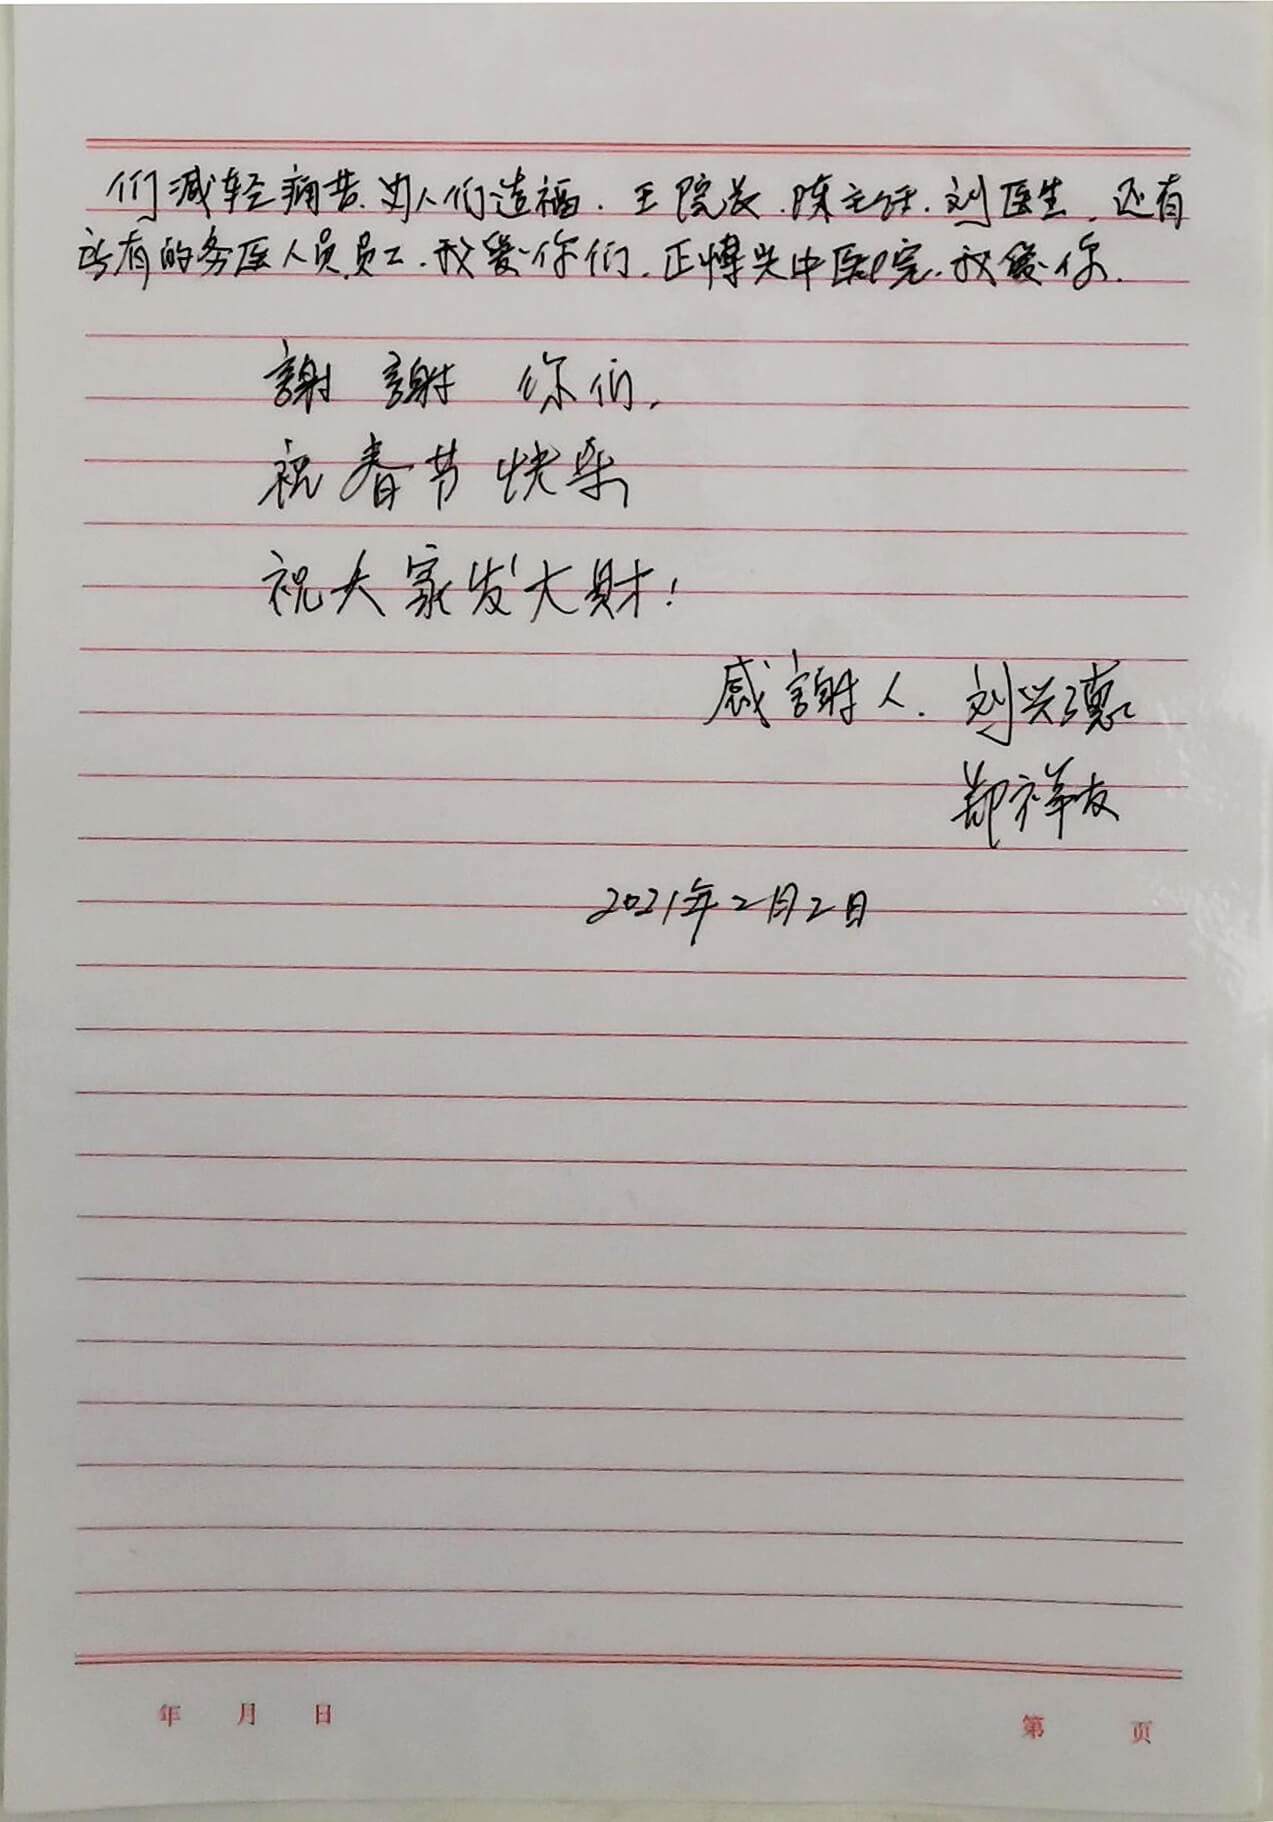 们减轻痛苦、为人们造福．王院长．陈主任．刘医生．还有
所有的务医人员员工．我爱你们．正博兴中医院．我爱你．
謝謝你们．
祝春节快乐
祝大家发大财！
感謝人．刘兴德
郑祥友
2021年2月2日
年 月 日
第 页